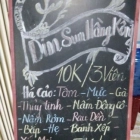 Dim Sum Hồng Kông
10K/3 Viên
Há Cảo: Tôm - Mực - Gà
Thuỷ Tinh - Nấm Đông Cô
Nấm Rơm - Rau Dền
Bắp - Hẹ - Bánh Xếp